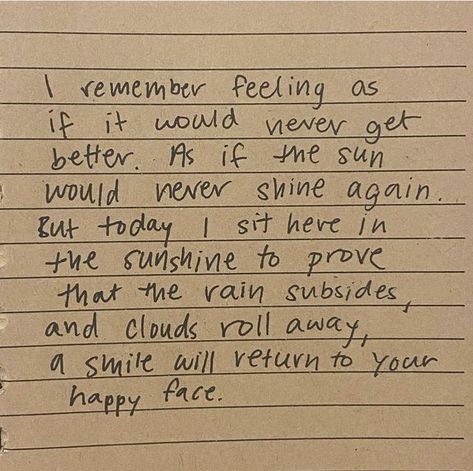 I remember feeling as
if it would never get
better. As if the sun
would never shine again.
But today I sit here in
the sunshine to prove
that the rain subsides,
and clouds roll away,
a smile will return to your
happy face.